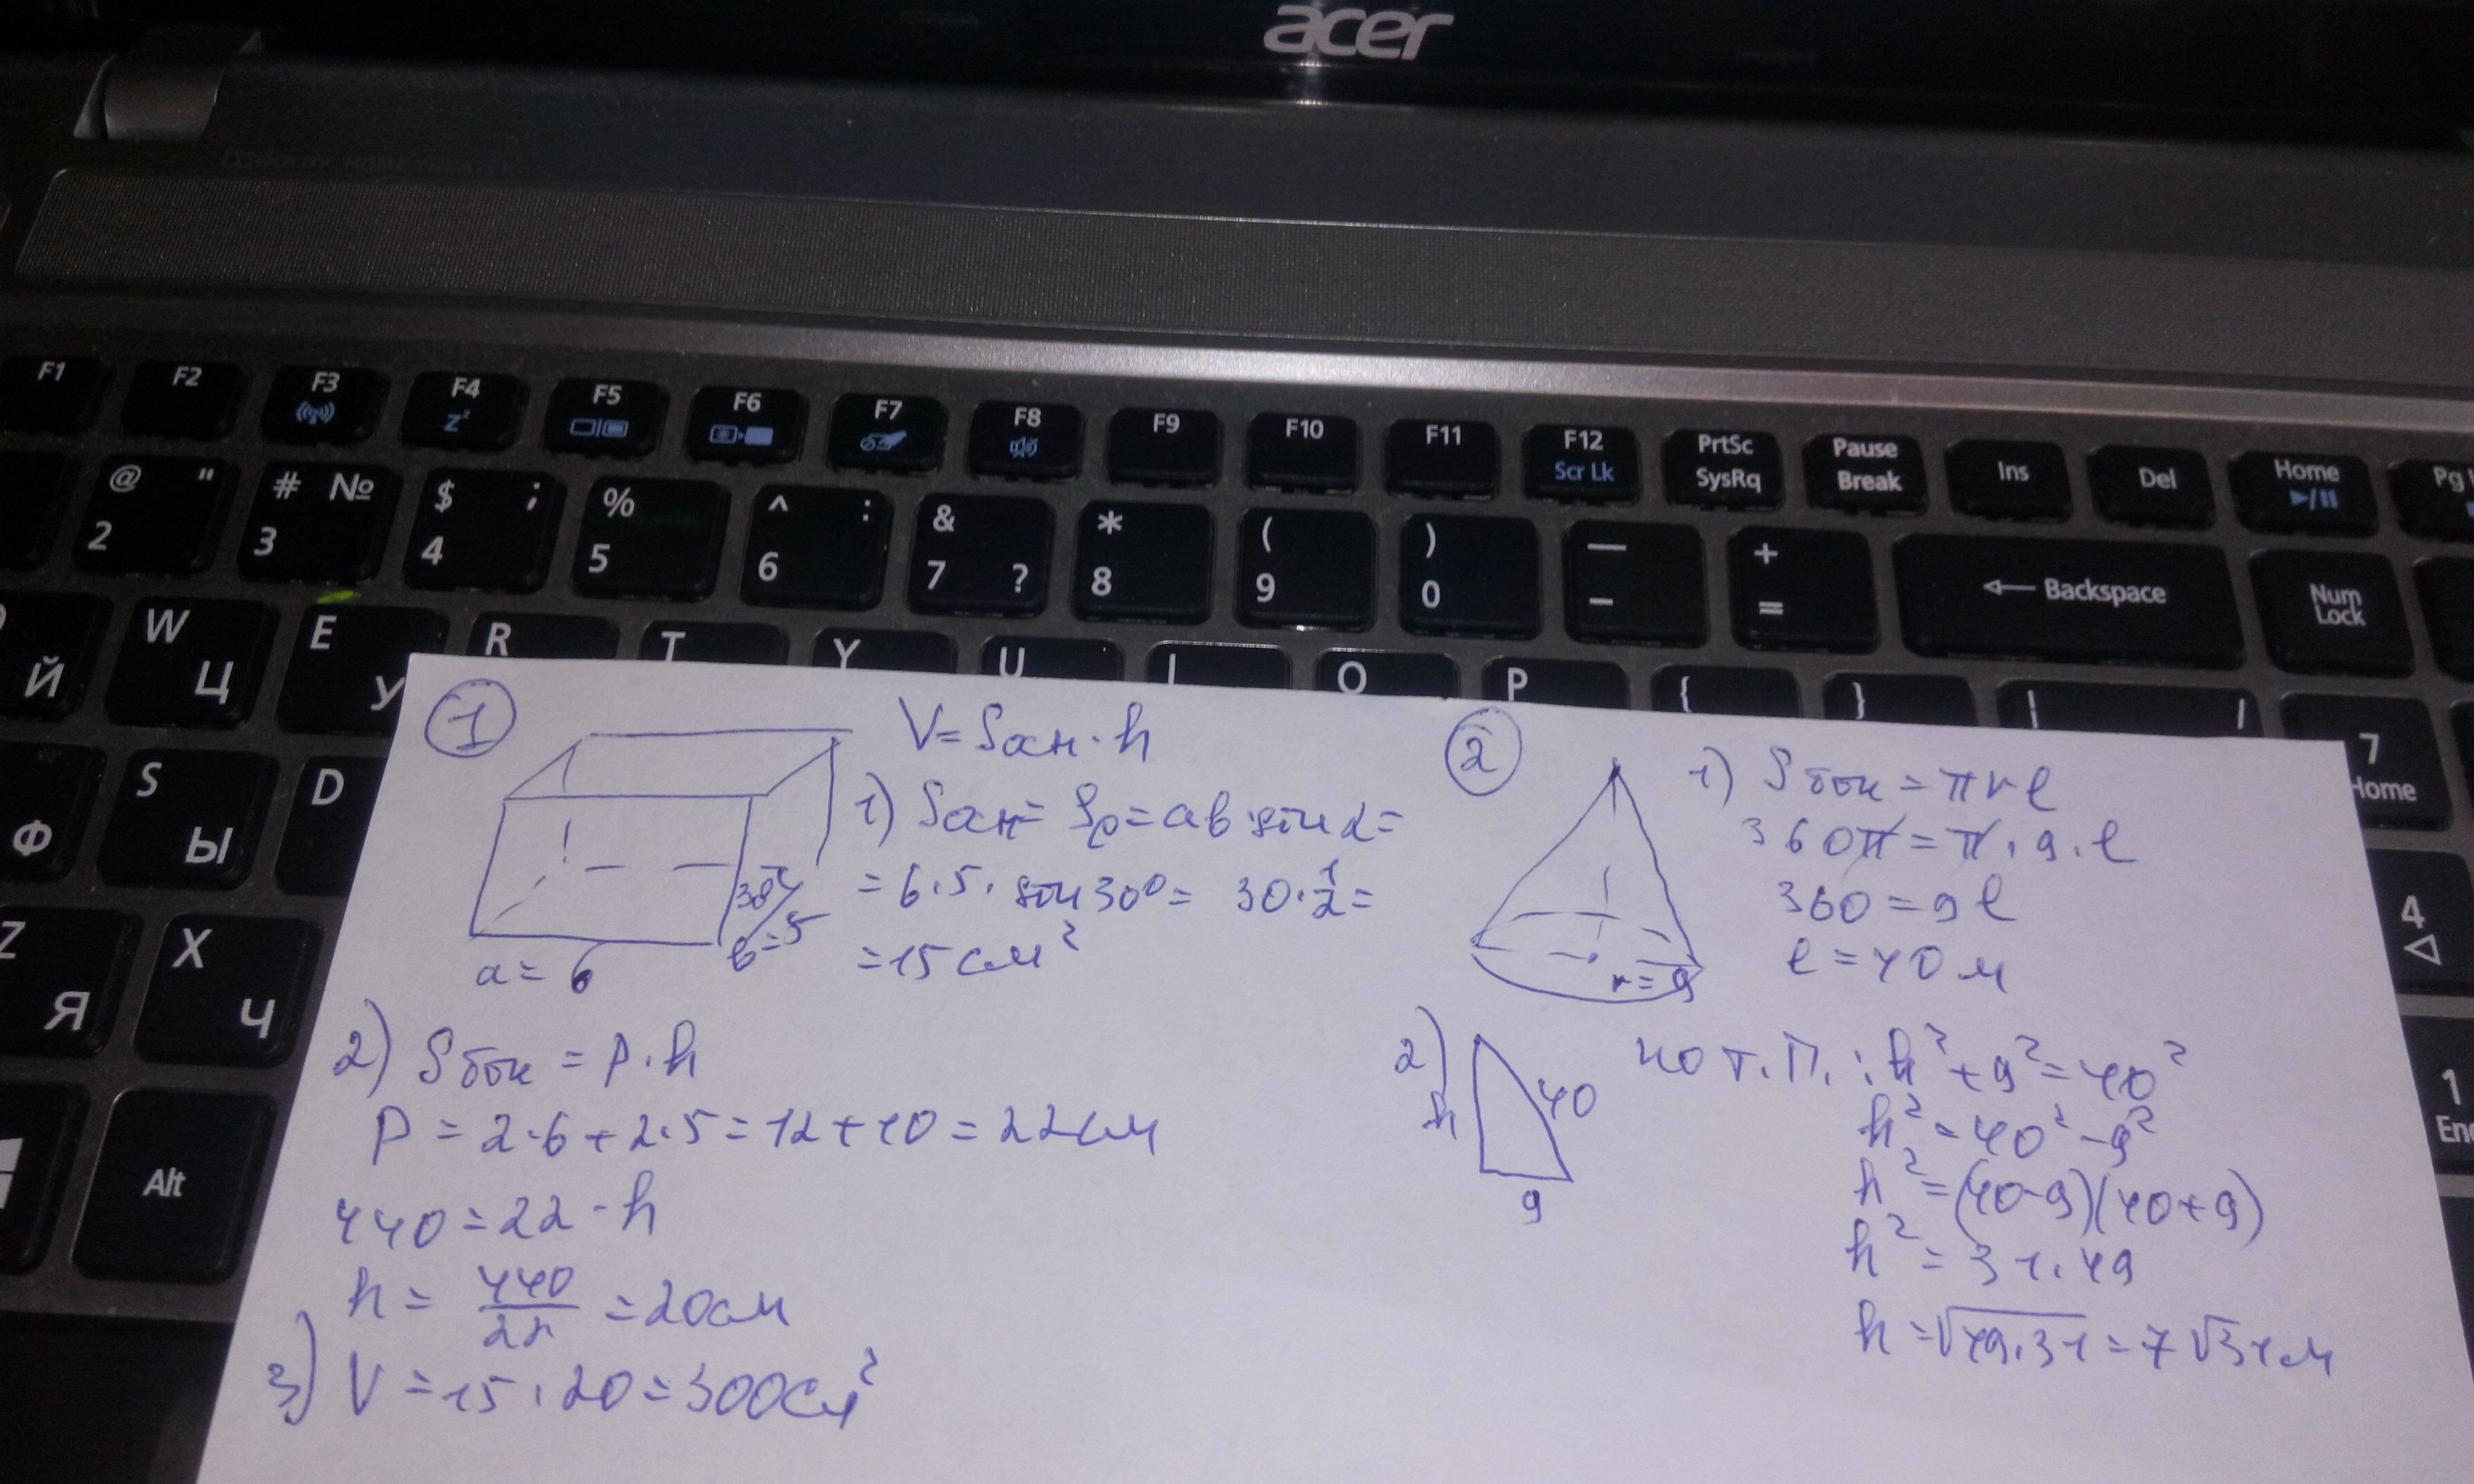 acer
F1 F2 F3 F4 F5 F6 F7 F8 F9 F10 F11 F12 PrtSc Pause Ins Del Home
Z Scr Lk SysRq Break
@ " # № $ ; % ^ : & * ( ) — + ← Backspace Num
2 3 4 5 6 7 ? 8 9 0 – = Lock
W E R T Y U I O P { } | 7
Й Ц У Home
S D
Ф Ы 4
Z X
Я Ч 1
Alt
1
V = Sосн · h
1) Sосн = S = ab · sin α =
= 6 · 5 · sin 30° = 30 · 1/2 =
= 15 см²
30°
b = 5
a = 6
2) Sбок = P · h
P = 2·6 + 2·5 = 12 + 10 = 22 см
440 = 22 · h
h = 440/22 = 20 см
3) V = 15 · 20 = 300 см²
2
1) Sбок = πrl
360π = π · 9 · l
360 = 9l
l = 40 м
r = 9
2) h 40 9
по т. П.: h² + 9² = 40²
h² = 40² - 9²
h² = (40-9)(40+9)
h² = 31 · 49
h = √49·31 = 7√31 м